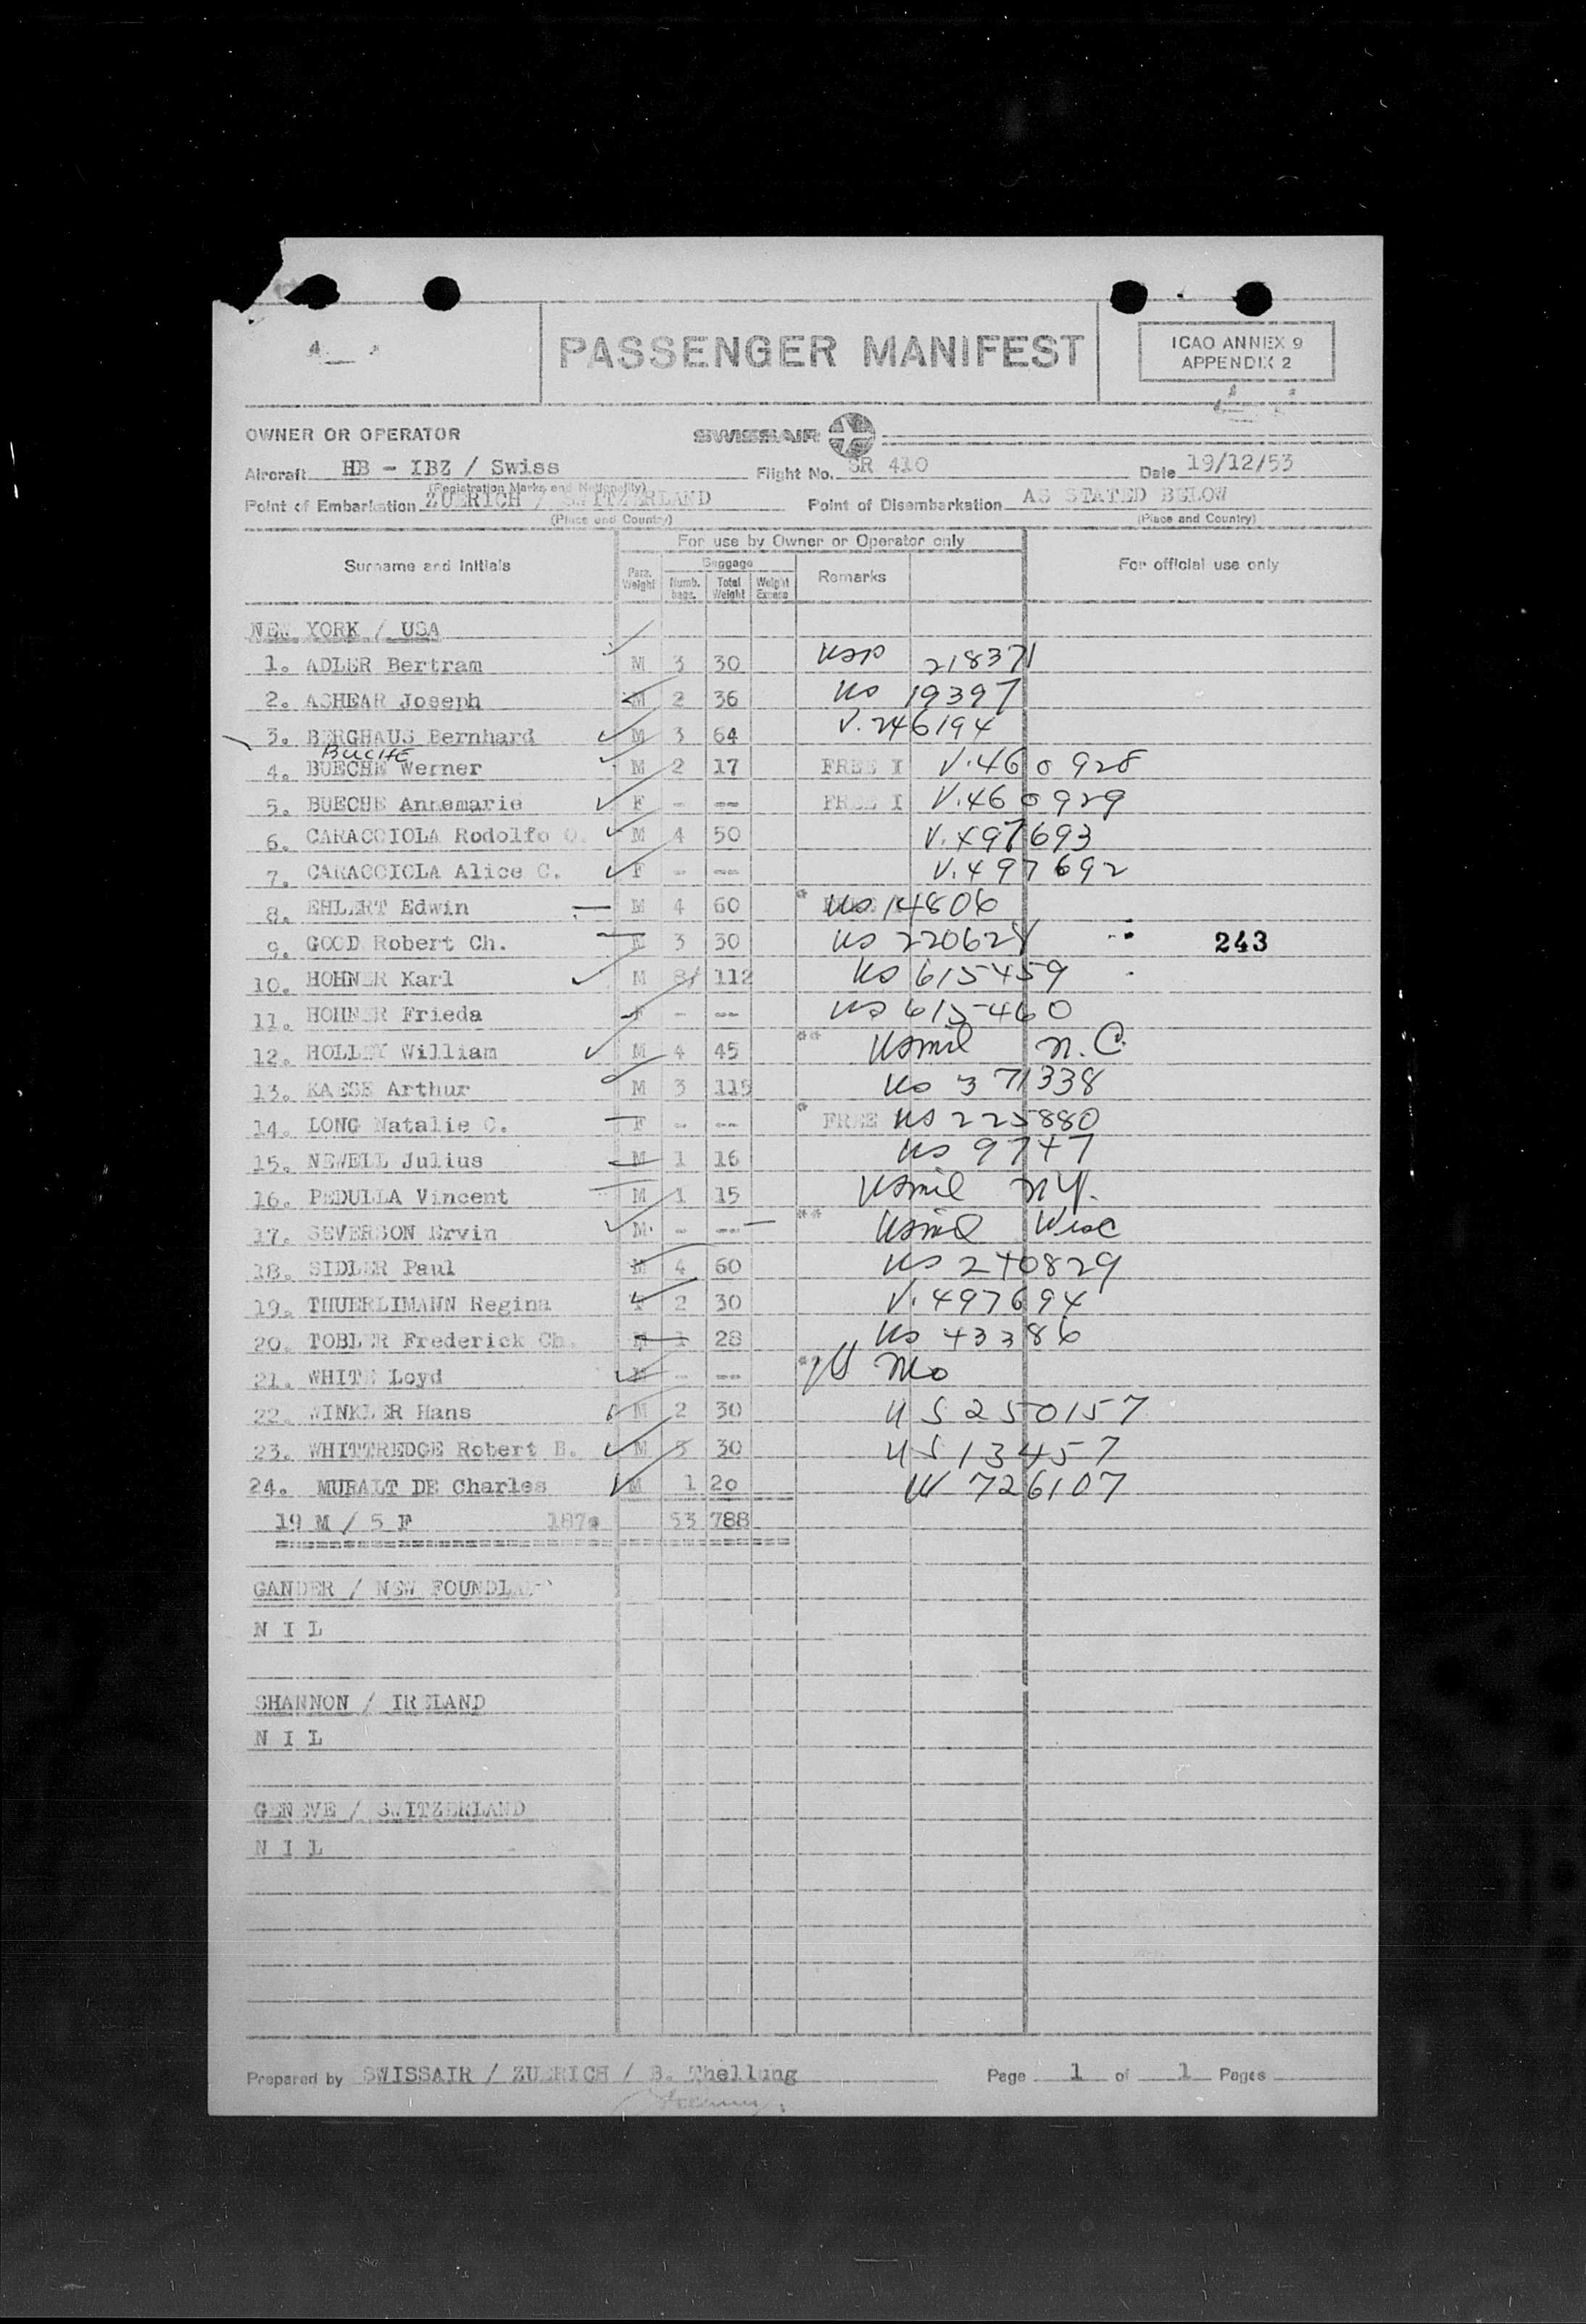 PASSENGER MANIFEST
ICAO ANNEX 9
APPENDIX 2
OWNER OR OPERATOR SWISSAIR
Aircraft HB - IBZ / Swiss Flight No. SR 410 Date 19/12/53
(Registration Marks and Nationality)
Point of Embarkation ZUERICH / SWITZERLAND Point of Disembarkation AS STATED BELOW
(Place and Country) (Place and Country)
For use by Owner or Operator only
Surname and Initials Pass. Weight Baggage Remarks For official use only
Numb. bags. Total Weight Weight Excess
NEW YORK / USA
1. ADLER Bertram M 3 30 218371
2. ASHEAR Joseph M 2 36 US 19397
3. BERGHAUS Bernhard M 3 64 V.246194
BUCHE
4. BUECHE Werner M 2 17 FREE I V.460928
5. BUECHE Annemarie F - -- FREE I V.460929
6. CARACCIOLA Rodolfo O. M 4 50 V.497693
7. CARACCIOLA Alice C. F - -- V.497692
8. EHLERT Edwin M 4 60 * US 14806
9. GOOD Robert Ch. M 3 30 US 220628 243
10. HOHNER Karl M 8/ 112 US 615459
11. HOHNER Frieda F - -- US 615460
12. HOLLEY William M 4 45 ** USmil N.C.
13. KAESE Arthur M 3 115 US 371338
14. LONG Natalie C. F - -- * FREE US 225880
15. NEWELL Julius M 1 16 US 9747
16. PEDULLA Vincent M 1 15 USmil NY.
17. SEVERSON Ervin M - -- ** USmil Wisc
18. SIDLER Paul M 4 60 US 240829
19. THUERLIMANN Regina F 2 30 V.497694
20. TOBLER Frederick Ch. M 1 28 US 43386
21. WHITE Loyd M - -- Mo
22. WINKLER Hans M 2 30 US 250157
23. WHITTREDGE Robert B. M 5 30 US 13457
24. MURALT DE Charles M 1 20 726107
19 M / 5 F 53 788
GANDER / NEW FOUNDLAND
N I L
SHANNON / IRELAND
N I L
GENEVE / SWITZERLAND
N I L
Prepared by SWISSAIR / ZUERICH / B. Thellung Page 1 of 1 Pages